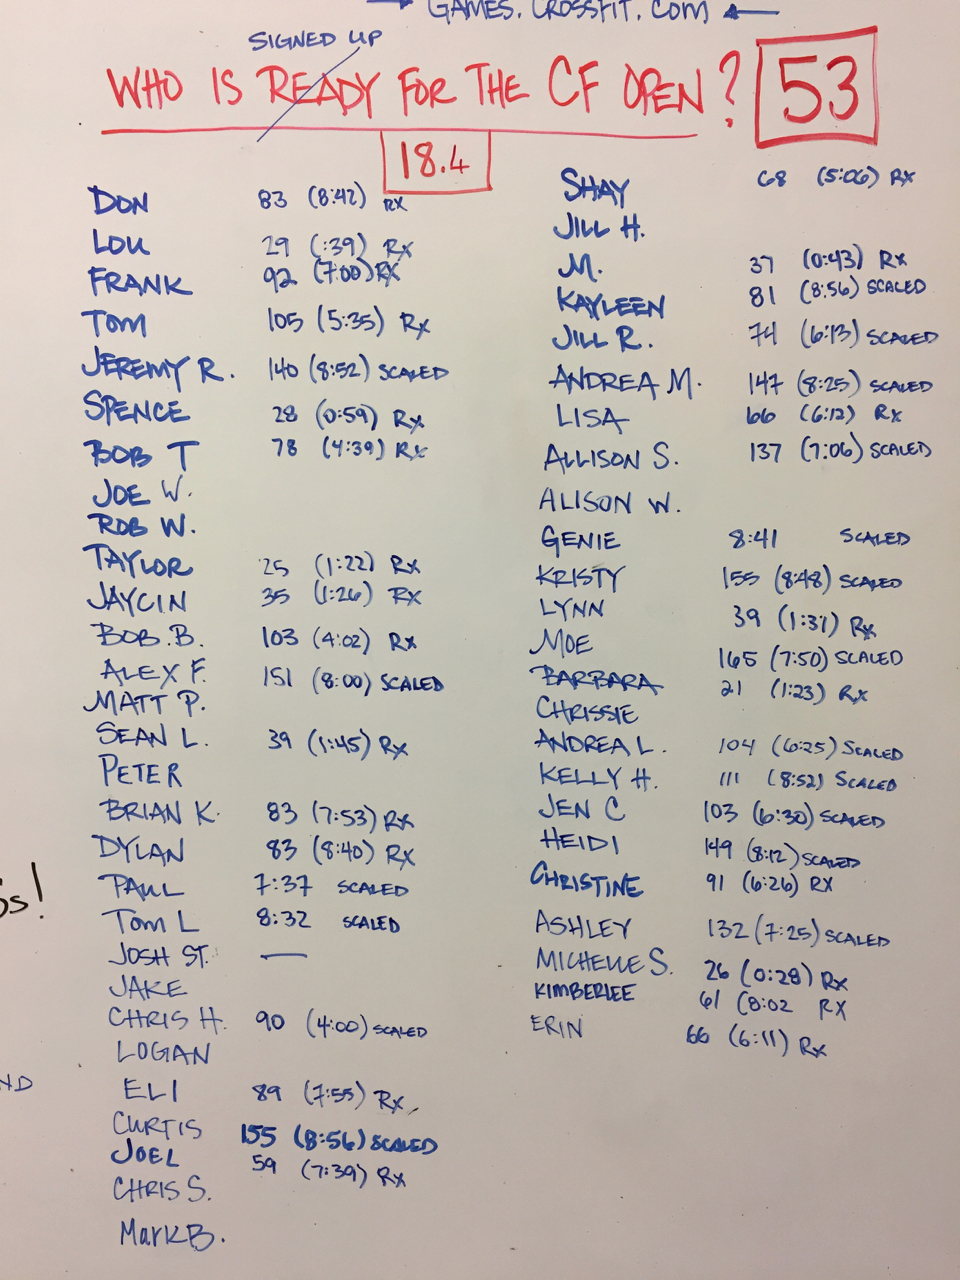 GAMES.CROSSFIT.COM
SIGNED UP
WHO IS READY FOR THE CF OPEN? 53
18.4
DON 83 (8:42) RX
LOU 29 (:39) RX
FRANK 92 (7:00) RX
TOM 105 (5:35) RX
JEREMY R. 140 (8:52) SCALED
SPENCE 28 (0:59) RX
BOB T 78 (4:39) RX
JOE W.
ROB W.
TAYLOR 25 (1:22) RX
JAYCIN 35 (1:26) RX
BOB.B. 103 (4:02) RX
ALEX F. 151 (8:00) SCALED
MATT P.
SEAN L. 39 (1:45) RX
PETER
BRIAN K. 83 (7:53) RX
DYLAN 83 (8:40) RX
PAUL 7:37 SCALED
TOM L 8:32 SCALED
JOSH ST. —
JAKE
CHRIS H. 90 (4:00) SCALED
LOGAN
ELI 89 (7:55) RX
CURTIS 155 (8:56) SCALED
JOEL 59 (7:39) RX
CHRIS S.
MARK B.
SHAY 68 (5:06) RX
JILL H.
M. 37 (0:43) RX
KAYLEEN 81 (8:56) SCALED
JILL R. 74 (6:13) SCALED
ANDREA M. 147 (8:25) SCALED
LISA 66 (6:12) RX
ALLISON S. 137 (7:06) SCALED
ALISON W.
GENIE 8:41 SCALED
KRISTY 155 (8:48) SCALED
LYNN 39 (1:37) RX
MOE 165 (7:50) SCALED
BARBARA 21 (1:23) RX
CHRISSIE
ANDREA L. 104 (6:25) SCALED
KELLY H. 111 (8:52) SCALED
JEN C 103 (6:30) SCALED
HEIDI 149 (8:12) SCALED
CHRISTINE 91 (6:26) RX
ASHLEY 132 (7:25) SCALED
MICHELLE S. 26 (0:28) RX
KIMBERLEE 61 (8:02 RX
ERIN 66 (6:11) RX